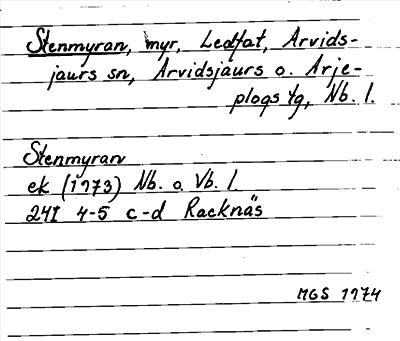 Stenmyran, myr, Ledfat, Arvids-
jaurs sn, Arvidsjaurs o. Arje-
plogs tg, Nb. l.
Stenmyran
ek (1973) Nb. o. Vb. l.
24I 4-5 c-d Racknäs
MGS 1974